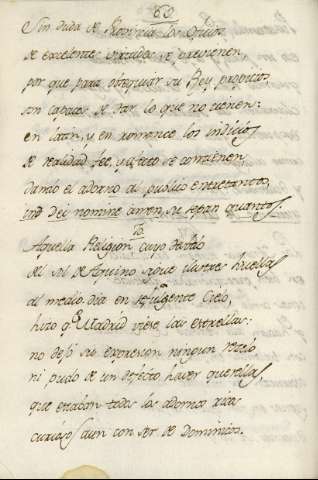 69
Sin duda de Provincia los Oficios
de excelentes virtudes se previenen,
por que para obsequiar su Rey propicios
son capaces de dar lo que no tienen:
en latin, y en romance los indicios
de realidad fee, y afecto se contienen,
dando el adorno al publico entretantos,
ind Dei nomine amen, su sepan quantos.
70
Aquella Religion cuyo desvelo
del sol de Aquino sigue claras huellas
al medio dia en refulgente Cielo,
hizo qe Madrid viese las estrellas:
no dejó su expresion ningun recelo
ni pudo de un defecto haver querellas
que estaban todos los adornos ricos
curiosos aun con ser de Dominicos.